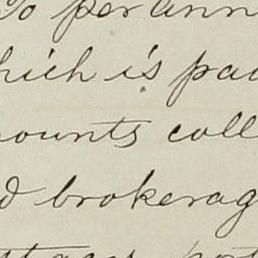 % per ann
hich is pai
ounts coll
d brokerag